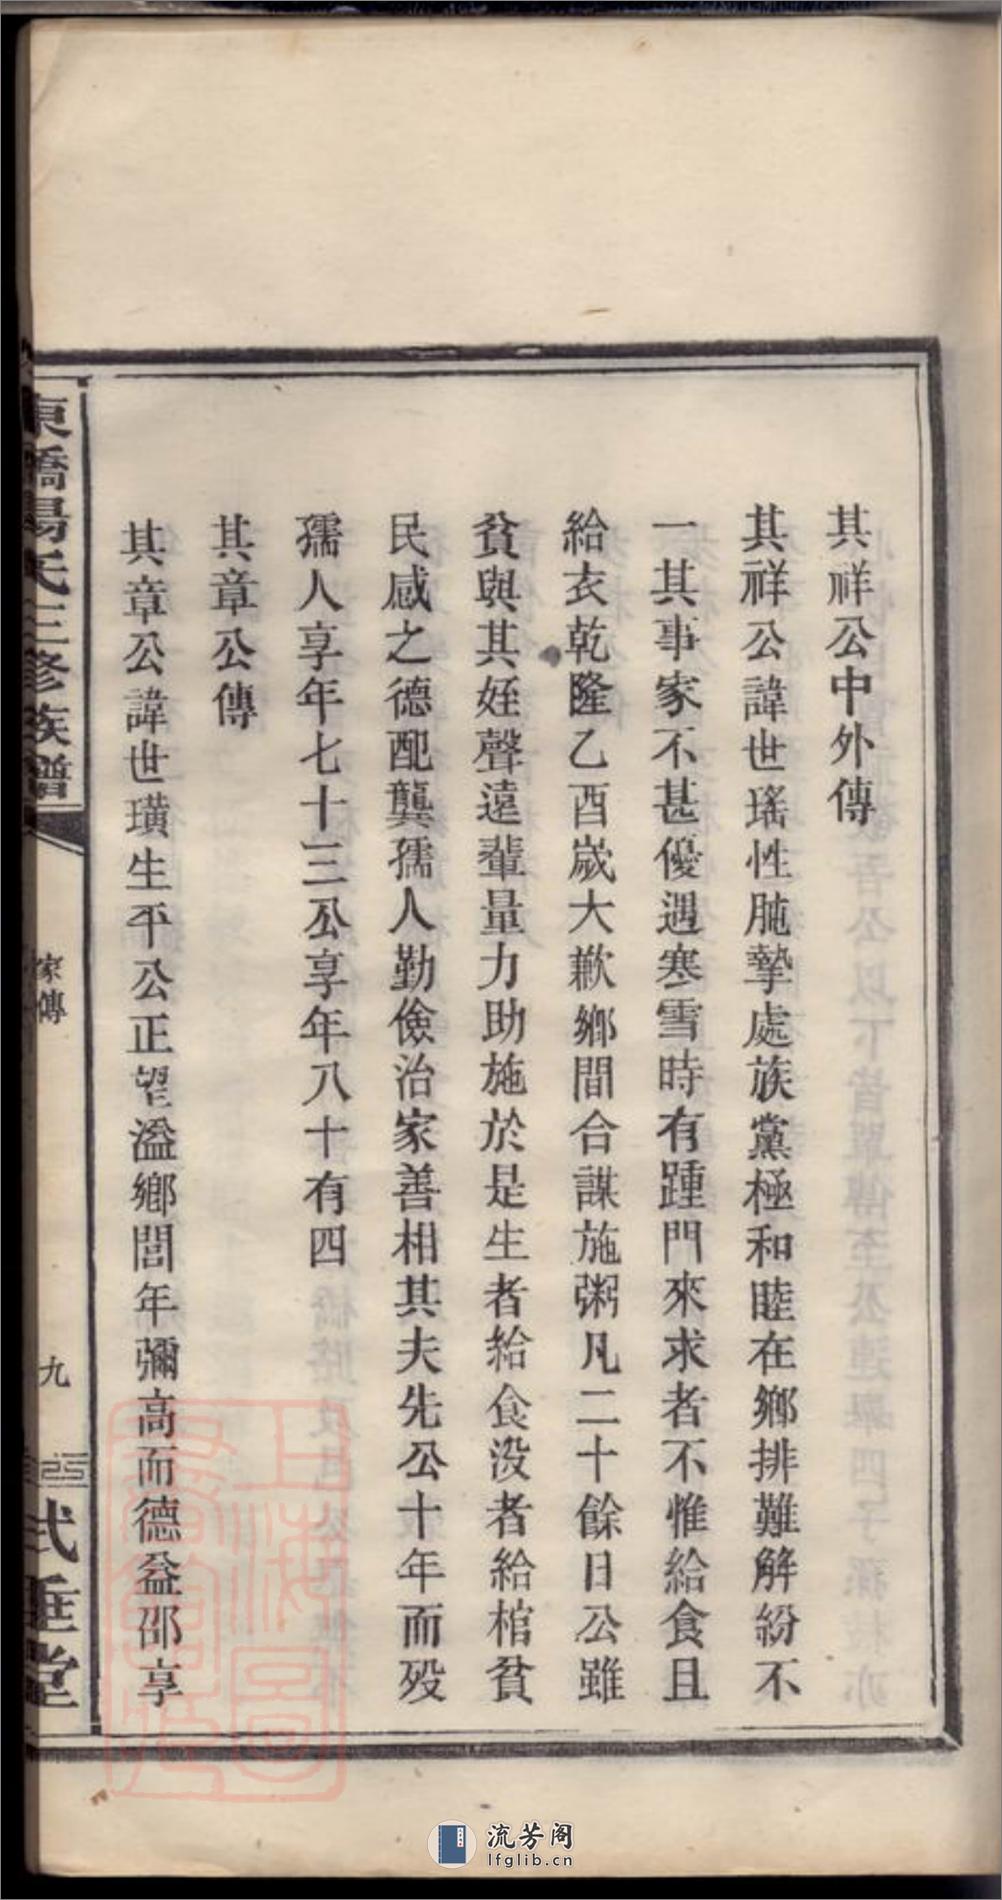 其祥公中外傳
其祥公諱世瑤性肫摯處族黨極和睦在鄉排難解紛不
一其事家不甚優遇寒雪時有踵門來求者不惟給食且
給衣乾隆乙酉歲大歉鄉間合謀施粥凡二十餘日公雖
貧與其姪聲遠輩量力助施於是生者給食没者給棺貧
民感之德配龔孺人勤儉治家善相其夫先公十年而殁
孺人享年七十三公享年八十有四
其章公傳
其章公諱世璜生平公正望溢鄉閭年彌高而德益邵享
東橋易氏三修族譜
家傳
九
式垂堂
上海圖書館藏
流芳阁
lfglib.cn